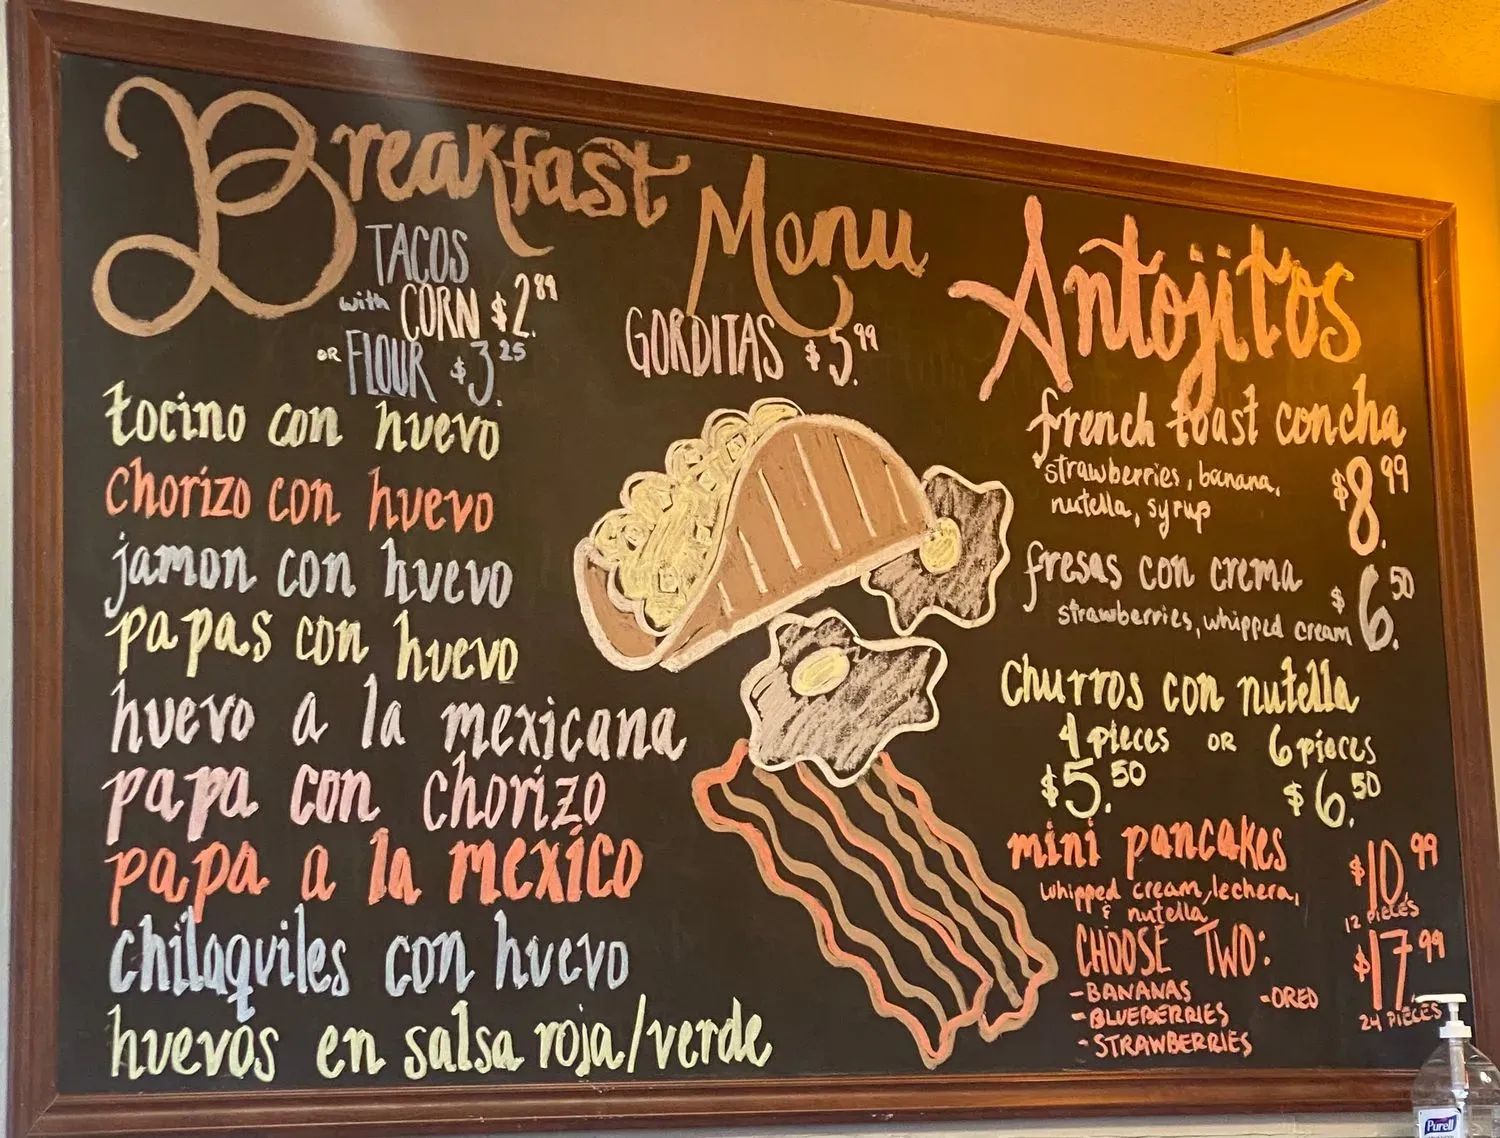 Breakfast Menu
TACOS
with CORN $2.89
OR FLOUR $3.25
GORDITAS $5.99
tocino con huevo
chorizo con huevo
jamon con huevo
papas con huevo
huevo a la mexicana
papa con chorizo
papa a la mexico
chilaquiles con huevo
huevos en salsa roja/verde
Antojitos
french toast concha
strawberries, banana,
nutella, syrup
$8.99
fresas con crema
strawberries, whipped cream
$6.50
churros con nutella
4 pieces OR 6 pieces
$5.50 $6.50
mini pancakes
whipped cream, lechera,
& nutella
$10.99
12 PIECES
$17.99
24 PIECES
CHOOSE TWO:
-BANANAS -OREO
-BLUEBERRIES
-STRAWBERRIES
Purell